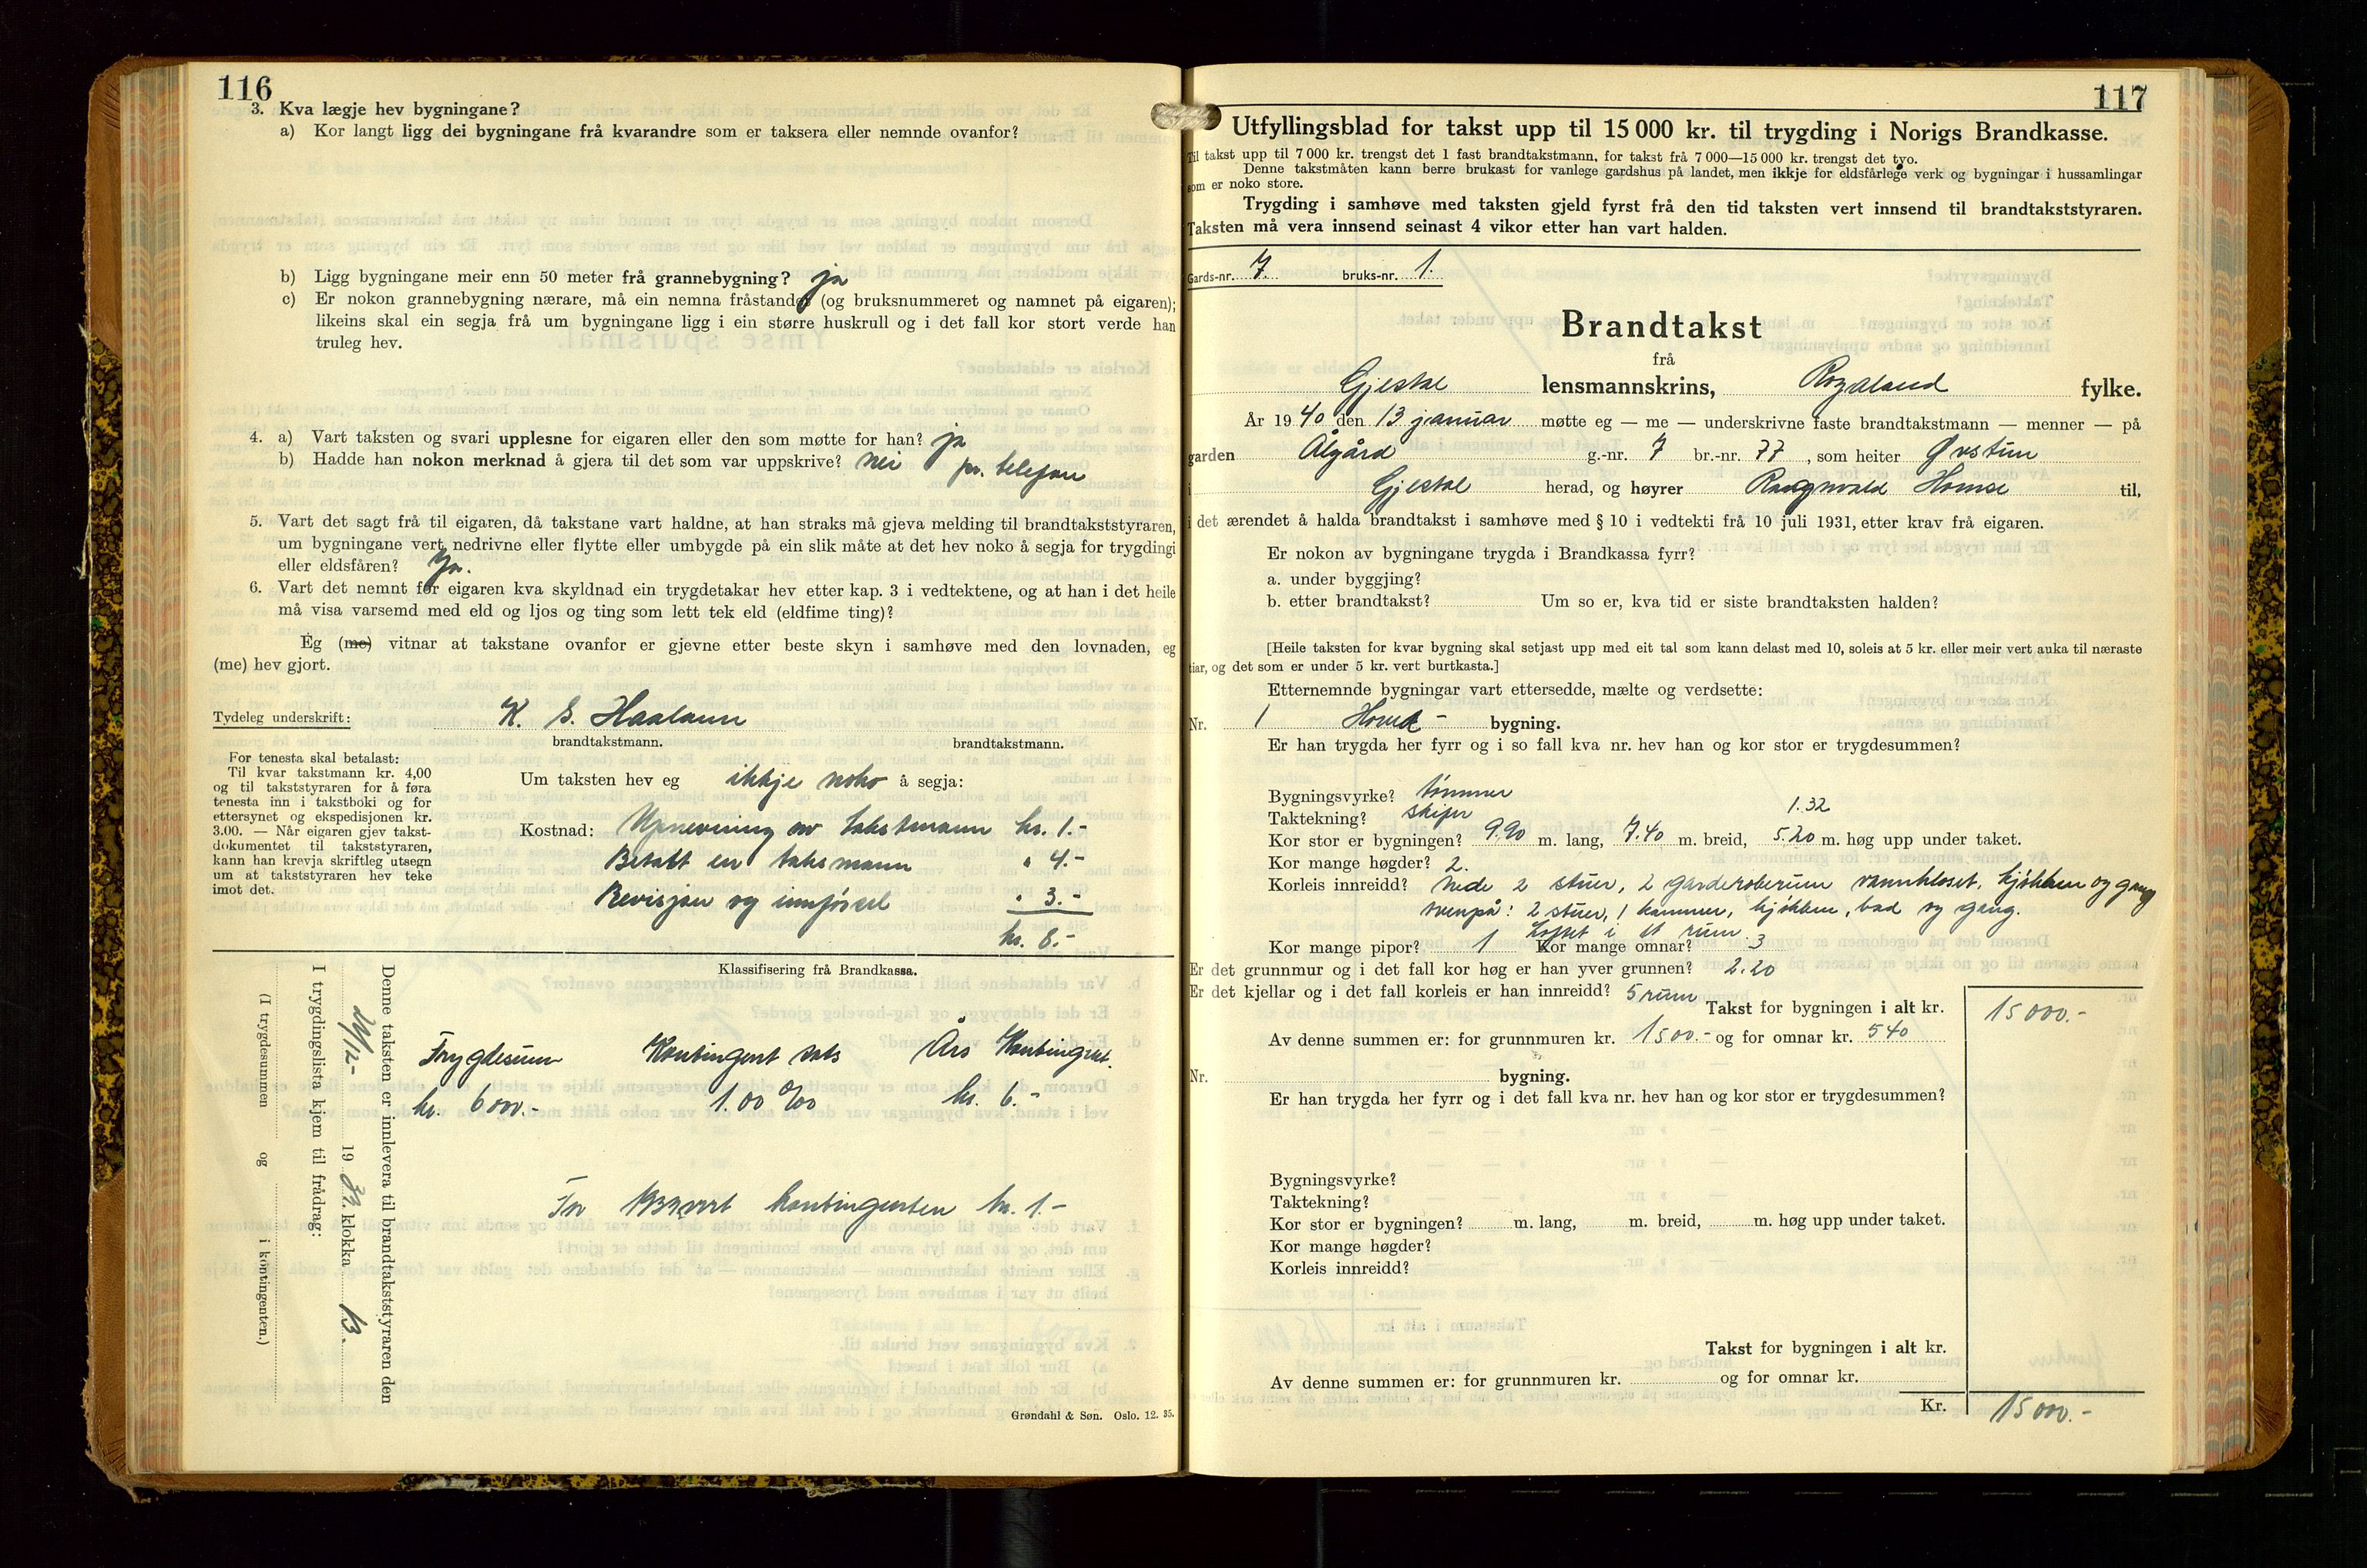 116
3. Kva lægje hev bygningane?
a) Kor langt ligg dei bygningane frå kvarandre som er taksera eller nemnde ovanfor?
b) Ligg bygningane meir enn 50 meter frå grannebygning? ja
c) Er nokon grannebygning nærare, må ein nemna fråstandet (og bruksnummeret og namnet på eigaren);
likeins skal ein segja frå um bygningane ligg i ein større huskrull og i det fall kor stort verde han
truleg hev.
4. a) Vart taksten og svari upplesne for eigaren eller den som møtte for han? ja
b) Hadde han nokon merknad å gjera til det som var uppskrive? nei pr. telefon
5. Vart det sagt frå til eigaren, då takstane vart haldne, at han straks må gjeva melding til brandtakststyraren,
um bygningane vert nedrivne eller flytte eller umbygde på ein slik måte at det hev noko å segja for trygdingi
eller eldsfåren? Ja.
6. Vart det nemnt for eigaren kva skyldnad ein trygdetakar hev etter kap. 3 i vedtektene, og at han i det heile
må visa varsemd med eld og ljos og ting som lett tek eld (eldfime ting)?
Eg (me) vitnar at takstane ovanfor er gjevne etter beste skyn i samhøve med den lovnaden, eg
(me) hev gjort.
Tydeleg underskrift: K. S. Haaland
brandtakstmann. brandtakstmann.
For tenesta skal betalast:
Til kvar takstmann kr. 4,00
og til takststyraren for å føra
tenesta inn i takstboki og for
ettersynet og ekspedisjonen kr.
3.00. — Når eigaren gjev takst-
dokumentet til takststyraren,
kann han krevja skriftleg utsegn
um at takststyraren hev teke
imot det.
Um taksten hev eg ikkje noko å segja:
Kostnad: Upnevning av takstmann kr. 1.-
Betalt en taksmann " 4.-
Revisjon og innførsel " 3.-
kr. 8.-
Klassifisering frå Brandkassa.
Denne taksten er innlevera til brandtakststyraren den
21/12- 19 39. klokka 13.
I trygdingslista kjem til frådrag:
(I trygdesummen og i kontingenten.)
Trygdesum Kontingent sats Års Kontingent.
kr. 6000.- 1.00 ‰ kr. 6.-
For 1939 vert kontingenten kr. 1.-
Grøndahl & Søn. Oslo. 12. 35.
117
Utfyllingsblad for takst upp til 15 000 kr. til trygding i Norigs Brandkasse.
Til takst upp til 7 000 kr. trengst det 1 fast brandtakstmann, for takst frå 7 000—15 000 kr. trengst det tvo.
Denne takstmåten kann berre brukast for vanlege gardshus på landet, men ikkje for eldsfårlege verk og bygningar i hussamlingar
som er noko store.
Trygding i samhøve med taksten gjeld fyrst frå den tid taksten vert innsend til brandtakststyraren.
Taksten må vera innsend seinast 4 vikor etter han vart halden.
Gards-nr. 7. bruks-nr. 1.
Brandtakst
frå
Gjestal lensmannskrins, Rogaland fylke.
År 1940 den 13 januar møtte eg — me — underskrivne faste brandtakstmann — menner — på
garden Ålgård g.-nr. 7 br.-nr. 77, som heiter Øvstun
i Gjestal herad, og høyrer Rangnvald Homse til,
i det ærendet å halda brandtakst i samhøve med § 10 i vedtekti frå 10 juli 1931, etter krav frå eigaren.
Er nokon av bygningane trygda i Brandkassa fyrr?
a. under byggjing?
b. etter brandtakst? Um so er, kva tid er siste brandtaksten halden?
[Heile taksten for kvar bygning skal setjast upp med eit tal som kann delast med 10, soleis at 5 kr. eller meir vert auka til næraste
tiar, og det som er under 5 kr. vert burtkasta.]
Etternemnde bygningar vart ettersedde, mælte og verdsette:
Nr. 1 Hoved- bygning.
Er han trygda her fyrr og i so fall kva nr. hev han og kor stor er trygdesummen?
Bygningsvyrke? tømmer
Taktekning? skifer 1.32
Kor stor er bygningen? 9.90 m. lang, 7.40 m. breid, 5.20 m. høg upp under taket.
Kor mange høgder? 2.
Korleis innreidd? Nede 2 stuer, 2 garderoberum vannkloset, kjøkken og gang
ovenpå: 2 stuer, 1 kammer, kjøkken, bad og gang.
Loftet i et rum
Kor mange pipor? 1 Kor mange omnar? 3
Er det grunnmur og i det fall kor høg er han yver grunnen? 2.20
Er det kjellar og i det fall korleis er han innreidd? 5 rum
Takst for bygningen i alt kr. 15 000.-
Av denne summen er: for grunnmuren kr. 1500.- og for omnar kr. 540
Nr. bygning.
Er han trygda her fyrr og i det fall kva nr. hev han og kor stor er trygdesummen?
Bygningsvyrke?
Taktekning?
Kor stor er bygningen? m. lang, m. breid, m. høg upp under taket.
Kor mange høgder?
Korleis innreidd?
Takst for bygningen i alt kr.
Av denne summen er: for grunnmuren kr. og for omnar kr.
Kr. 15 000.-